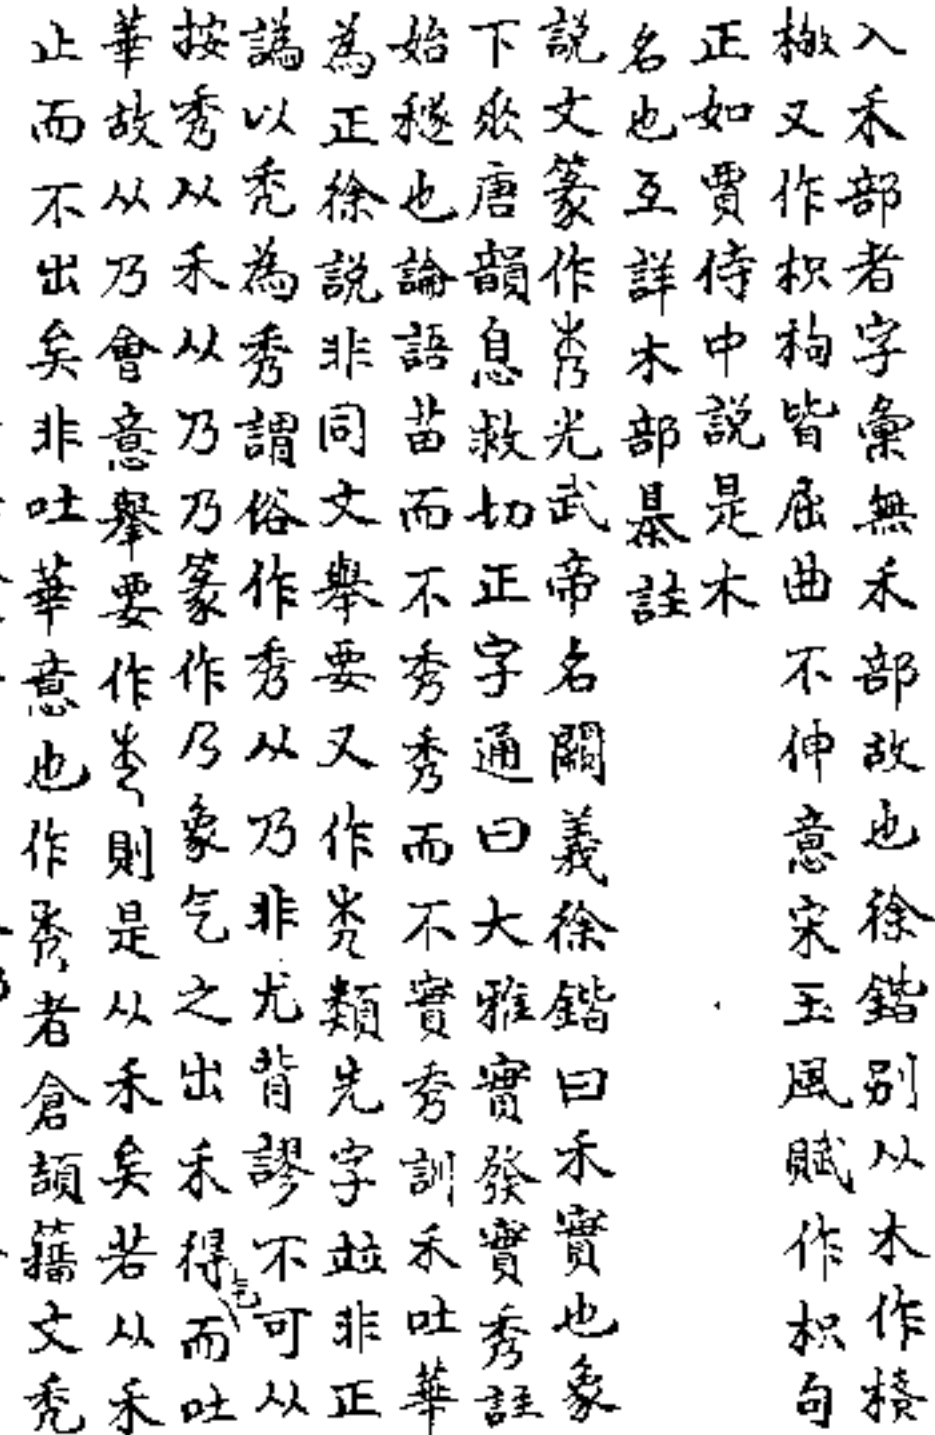 入禾部者字彙無禾部故也徐鍇别从木作𥡴
又作枳枸皆屈曲不伸意宋玉風賦作枳句
正如賈侍中説是木
名也互詳木部㬥註
説文篆作秀光武帝名闕義徐鍇曰禾實也象
下垂唐韻息救切正字通曰大雅實發實秀註
始穟也論語苗而不秀秀而不實秀訓禾吐華
為正徐説非同文舉要又作𣎴類先字並非正
譌以秃為秀謂俗作秀从乃非尤背謬不可从
按秀从禾从乃乃篆作乃象气之出禾得气而吐
華故从乃會意舉要作則是从禾矣若从禾
止而不出矣非吐華意也作者倉頡籀文秃